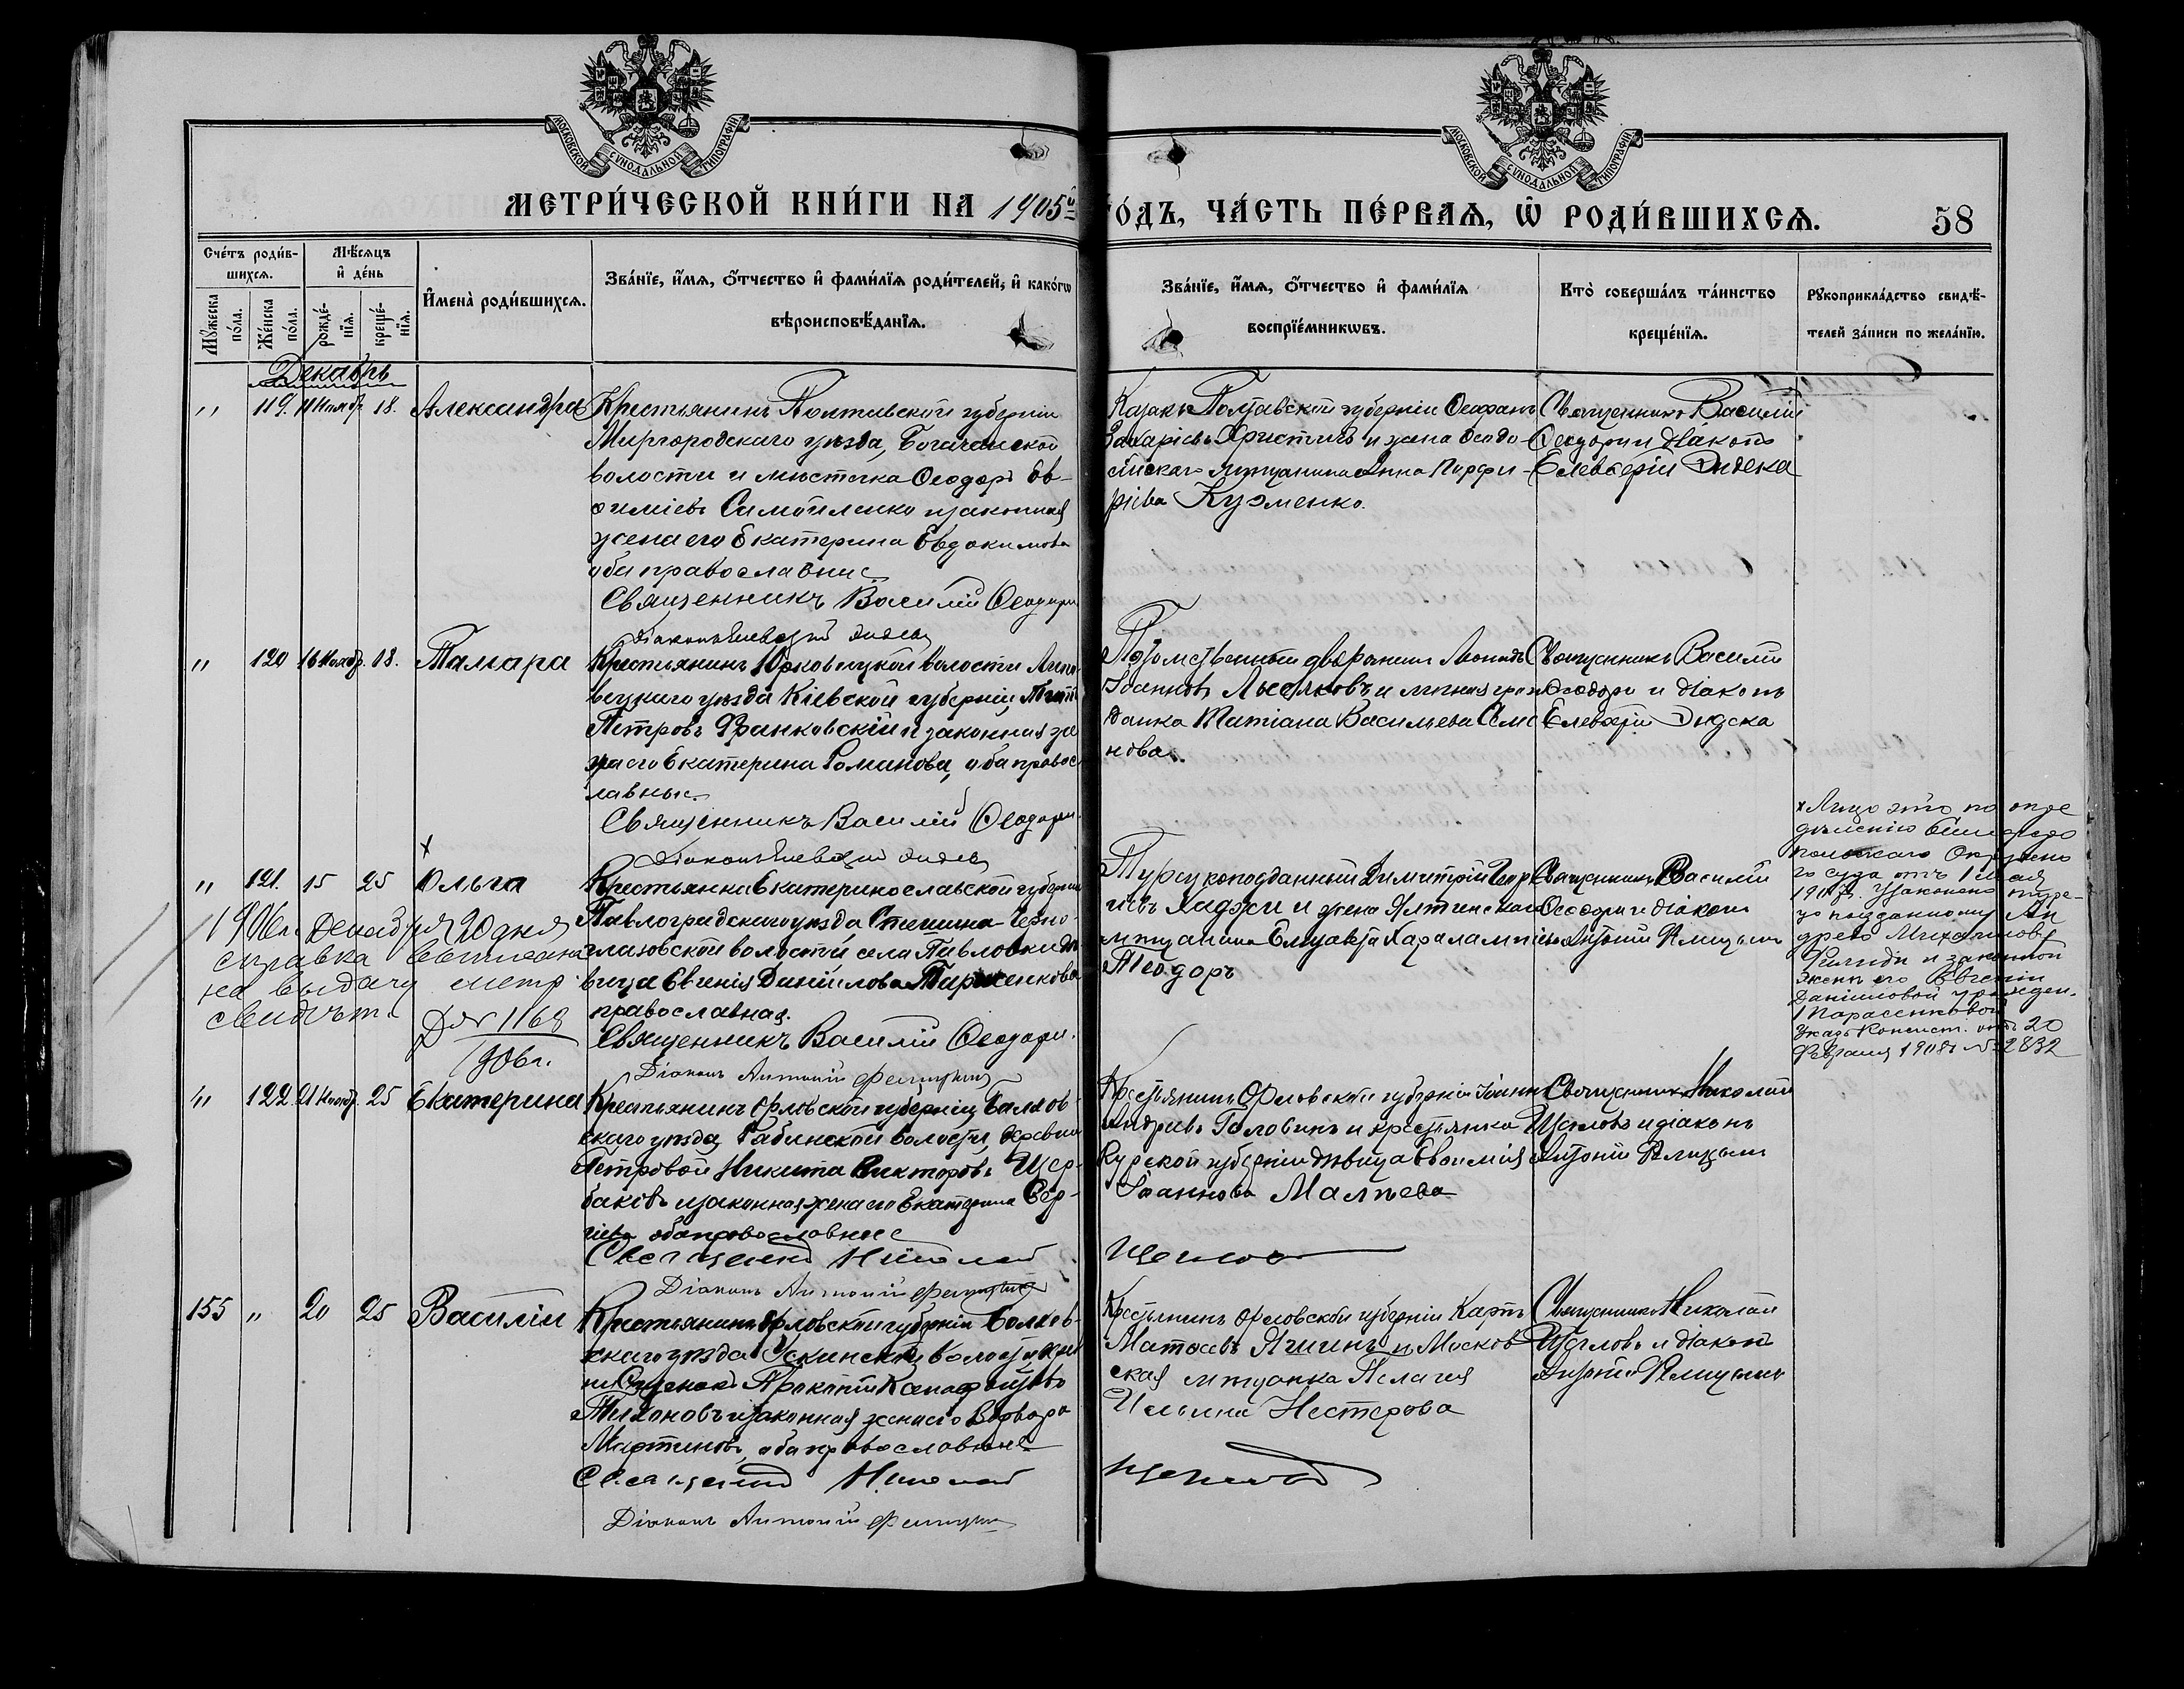 МОСКОВСКОЙ СѴНОДАЛЬНОЙ ТИПОГРАФІИ
МОСКОВСКОЙ СѴНОДАЛЬНОЙ ТИПОГРАФІИ
МЕТРИ́ЧЕСКОЙ КНИ́ГИ НА 1905й
ГО́ДЪ, ЧА́СТЬ ПЕ́РВАѦ, Ѡ҆ РОДИ́ВШИХСѦ.
58
Сче́тъ роди́в-
шихсѧ.
Мꙋ́жеска по́ла.
Же́нска по́ла.
Мѣ́сѧцъ
и҆ де́нь
рожде́-нїѧ.
креще́-нїѧ.
И҆мена̀ роди́вшихсѧ.
Зва́нїе, и҆́мѧ, ѻ҆́тчество и҆ фами́лїѧ роди́телей, и҆ како́гѡ
вѣроисповѣ́данїѧ.
Зва́нїе, и҆́мѧ, ѻ҆́тчество и҆ фами́лїѧ
воспрїе́мникѡвъ.
Кто̀ соверша́лъ та́инство
креще́нїѧ.
Рꙋкоприкла́дство свидѣ́-
телей за́писи по жела́нїю.
Декабрь
„ 119. 11 Ноябр. 18. Александра
Крестьянинъ Полтавской губерніи
Миргородскаго уѣзда, Богачанской
волости и мѣстечка Ѳеодоръ Ев-
ѳиміевъ Самойленко и законная
жена его Екатерина Евдокимова
оба православные
Священникъ Василій Ѳеодори
Діаконъ Елевѳерій Дидека
Казакъ Полтавской губерніи Ѳеофанъ
Захаріевъ Христичъ и жена Ѳеодо-
сійскаго мѣщанина Анна Порфи-
ріева Кузменко.
Священникъ Василій
Ѳеодори и діаконъ
Елевѳерій Дидека
„ 120 16 Ноябр. 18. Тамара
Крестьянинъ Юрковецкой волости Липо-
вецкаго уѣзда Кіевской губерніи,
Петровъ Франковскій и законная же
на его Екатерина Романова, оба правос
лавные.
Священникъ Василій Ѳеодори.
Діаконъ Елевѳерій Дидека
Потомственный дворянинъ Леонидъ
Іоанновъ Лыселковъ и личная граж
данка Татіана Васильева Семе
нова.
Священникъ Василій
Ѳеодори и діаконъ
Елевѳерій Дидека
„ 121. 15 25 Ольга
Крестьянка Екатеринославской губерніи
Павлоградскаго уѣзда, Черно-
глазовской волости села Павловки дѣ-
вица Евгенія Даніилова
православная.
Священникъ Василій Ѳеодори.
Діаконъ Антоній
Турецкоподданный Димитрій Геор
гіевъ Хаджи и жена Ялтинскаго
мѣщанина Елизавета Харалампіева
Теодоръ
Священникъ Василій
Ѳеодори и діаконъ
Антоній
1906 г. Декабря 20 дня
справка выписана
на выдачу метр.
свидѣт.
1168
1906 г.
х Лицо это по опре
дѣленію Симферо
польскаго Окружна
го суда отъ 1 мая
1907 г. узаконено турец-
ко подданному Ан
дрею Михаилову
и законной
женѣ его Евгеніи
Даніиловой урожден.
Парасенковой
Указъ Консист. отъ 20
Февраля 1908 г № 2832
„ 122. 21 Ноябр. 25 Екатерина
Крестьянинъ Орловской губерніи, Болхов-
скаго уѣзда, волости, деревни
Петровой Никита Викторовъ Щер-
баковъ и законная жена его Екатерина Сер-
гіева оба православные
Священникъ Николай
Діаконъ Антоній
Крестьянинъ Орловской губерніи Іоаннъ
Андреевъ Головинъ и крестьянка
Курской губерніи дѣвица Евѳимія
Іоаннова Малѣева
Щегловъ
Священникъ Николай
Щегловъ и діаконъ
Антоній
155 „ 20 25 Василій
Крестьянинъ Орловской губерніи Болхов-
скаго уѣзда волости
Прокопій
Тихоновъ и законная жена его Варвара
Мартинова, оба православные
Священникъ Николай
Діаконъ Антоній
Крестьянинъ Орловской губерніи Карпъ
Матѳеевъ и Москов-
ская мѣщанка Пелагія
Ильина Нестерова
Щегловъ
Священникъ Николай
Щегловъ и діаконъ
Антоній